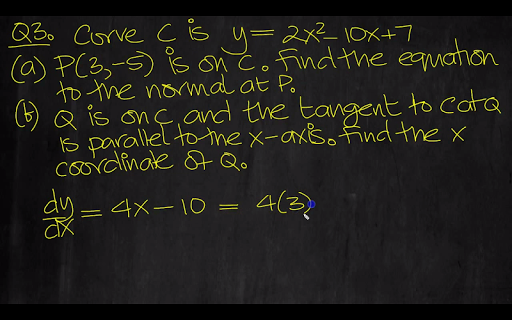 Q3. Curve C is y = 2x²-10x+7
(a) P(3,-5) is on C. Find the equation
to the normal at P.
(b) Q is on C and the tangent to C at Q
is parallel to the x-axis. Find the x
coordinate of Q.
dy/dx = 4x-10 = 4(3)